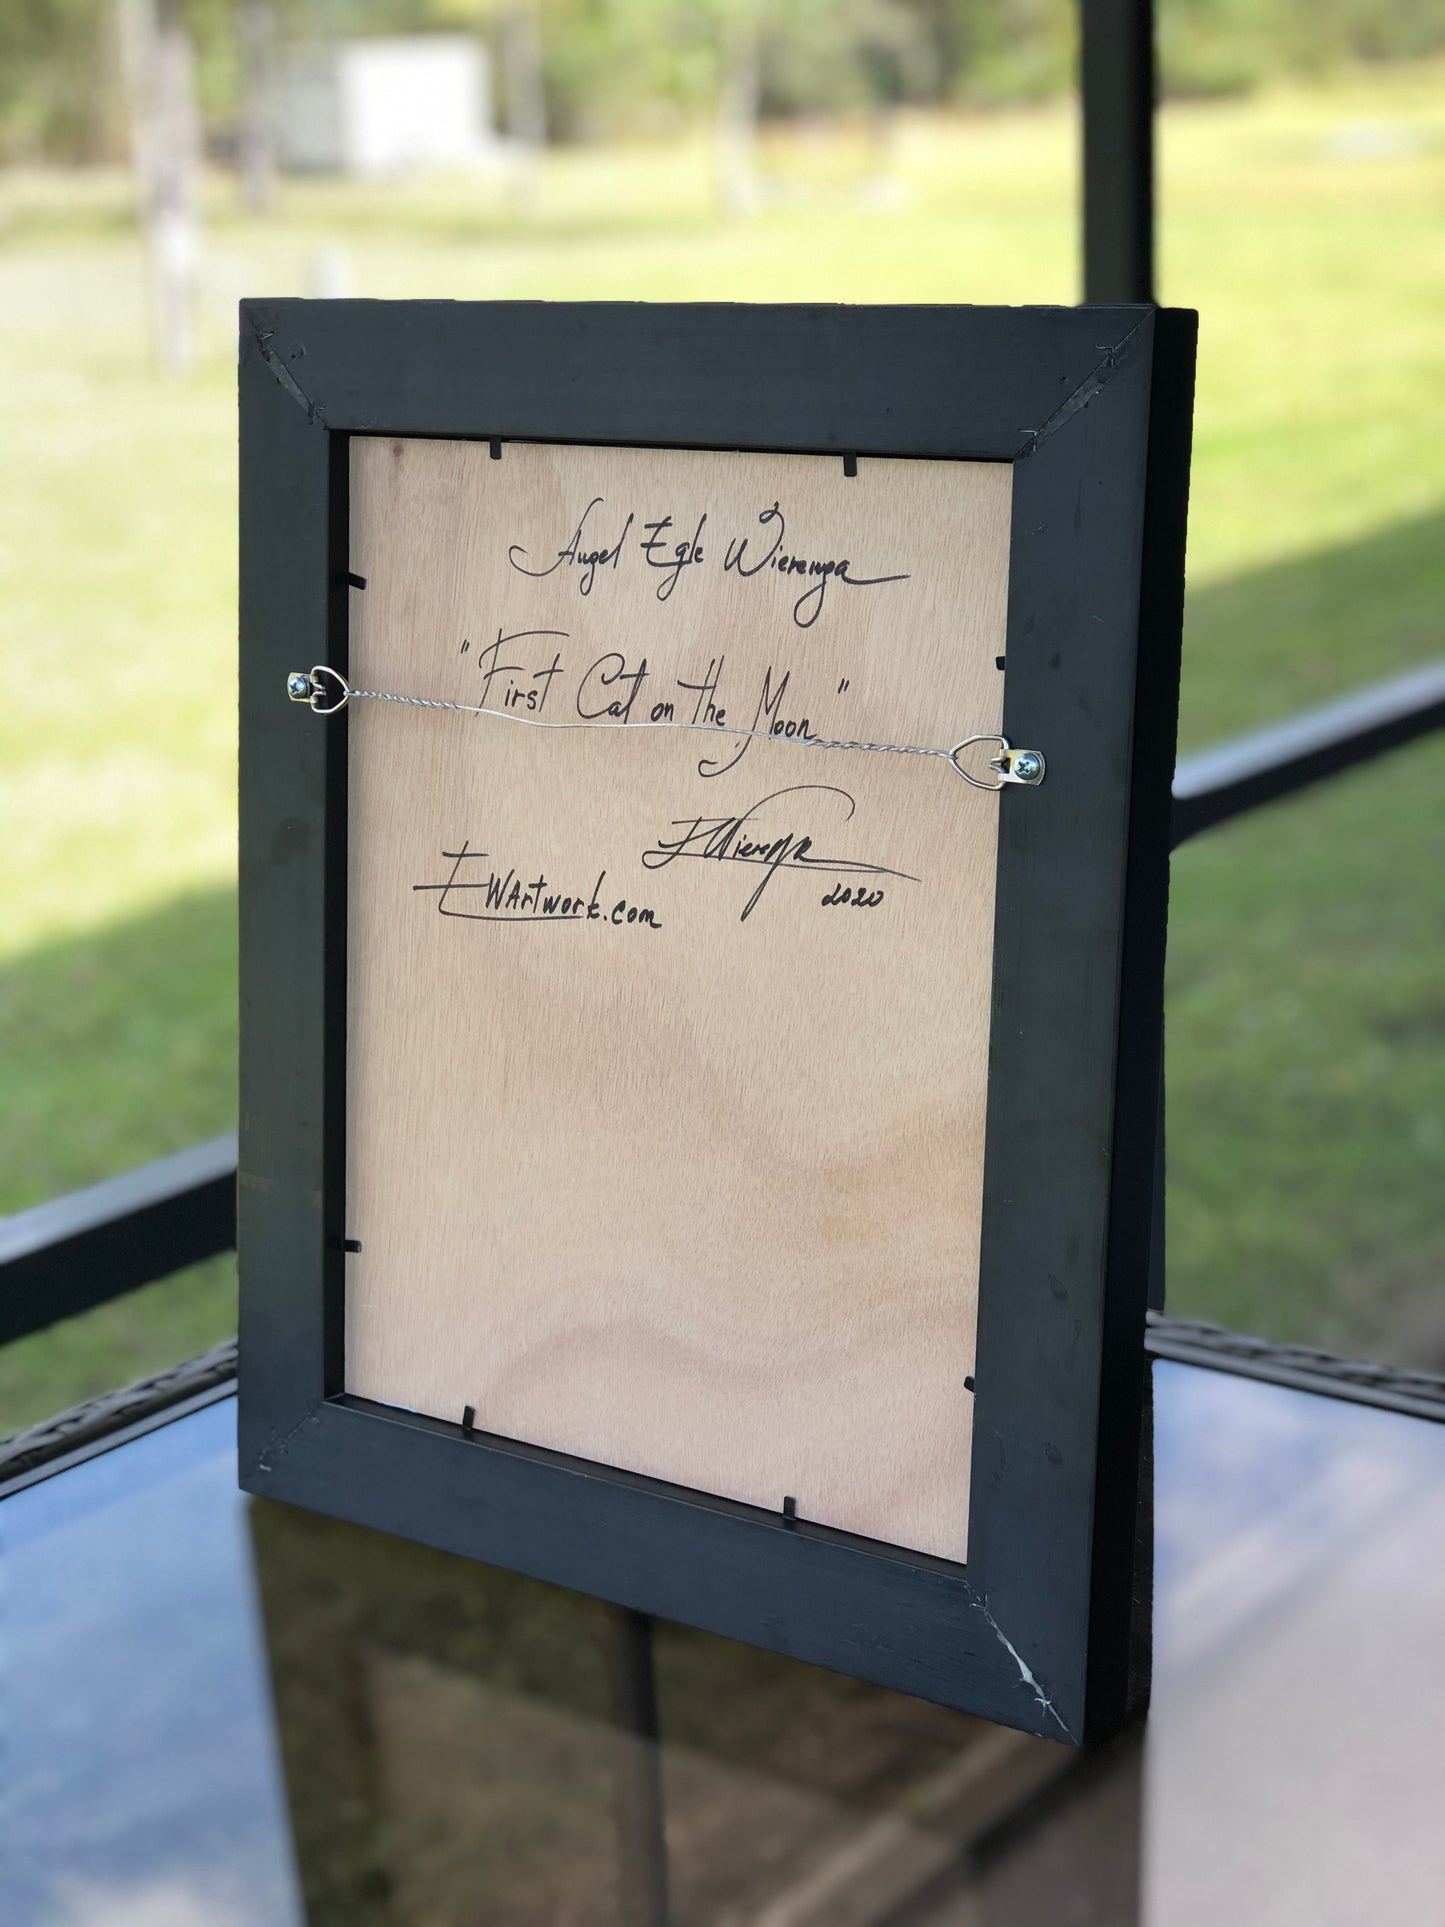 Angel Egle Wierenga
"First Cat on the Moon"
EWierenga
2020
EWArtwork.com